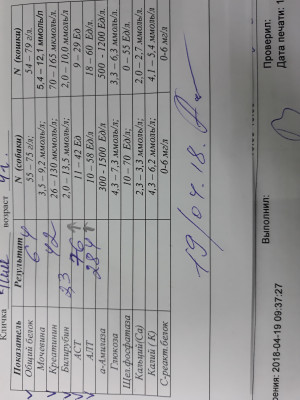 Кличка возраст 4 г.
Показатель Результат N (собаки) N (кошки)
Общий белок 64 55 – 75 г/л; 54 – 79 г/л.
Мочевина 3,5 – 9,2 ммоль/л; 5,4 – 12,1 ммоль/л
Креатинин 42 26 – 130 ммоль/л; 70 – 165 мкмоль/л.
Билирубин 33 2,0 – 13,5 ммоль/л; 2,0 – 10,0 ммоль/л
АСТ 76 ↑ 11 – 42 Ед 9 – 29 Ед
АЛТ 284 ↑ 10 – 58 Ед/л 18 – 60 Ед/л
α-Амилаза 300 -1500 Ед/л 500 - 1200 Ед/л.
Глюкоза 4,3 – 7,3 ммоль/л; 3,3 – 6,3 ммоль/л.
Щел.фосфатаза 10 – 70 Ед/л; 0 – 55 Ед/л.
Кальций(Са) 2,3 – 3,3 ммоль/л; 2,0 – 2,7 ммоль/л.
Калий (К) 4,3 – 6,2 ммоль/л; 4,1 – 5,4 ммоль/л
С-реакт.белок 0-6 мг/л 0-6 мг/л
19/04.18.
Выполнил: Проверил:
зрения: 2018-04-19 09:37:27 Дата печати: 1